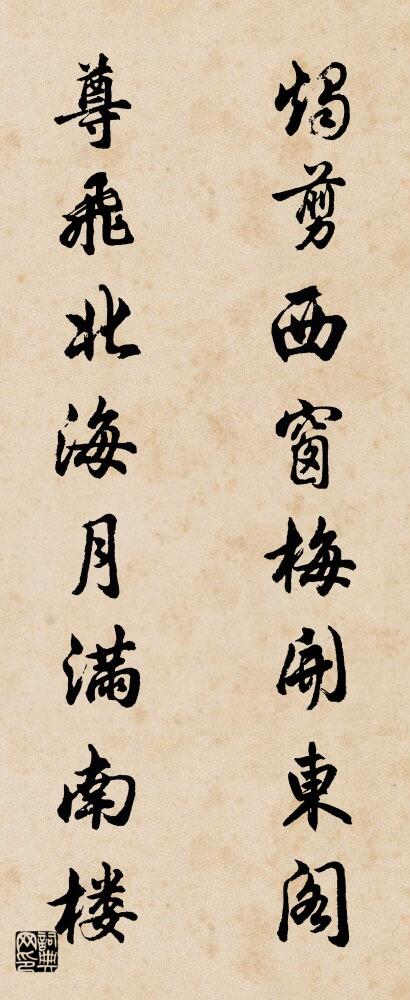 燭剪西窗梅開東阁
尊飛北海月滿南楼
詞典网印